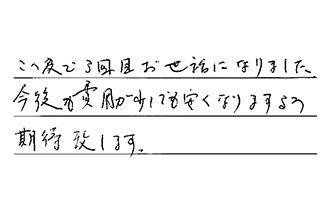 この度で3回目お世話になりました。
今後も費用が少しでも安くなりますよう
期待致します。